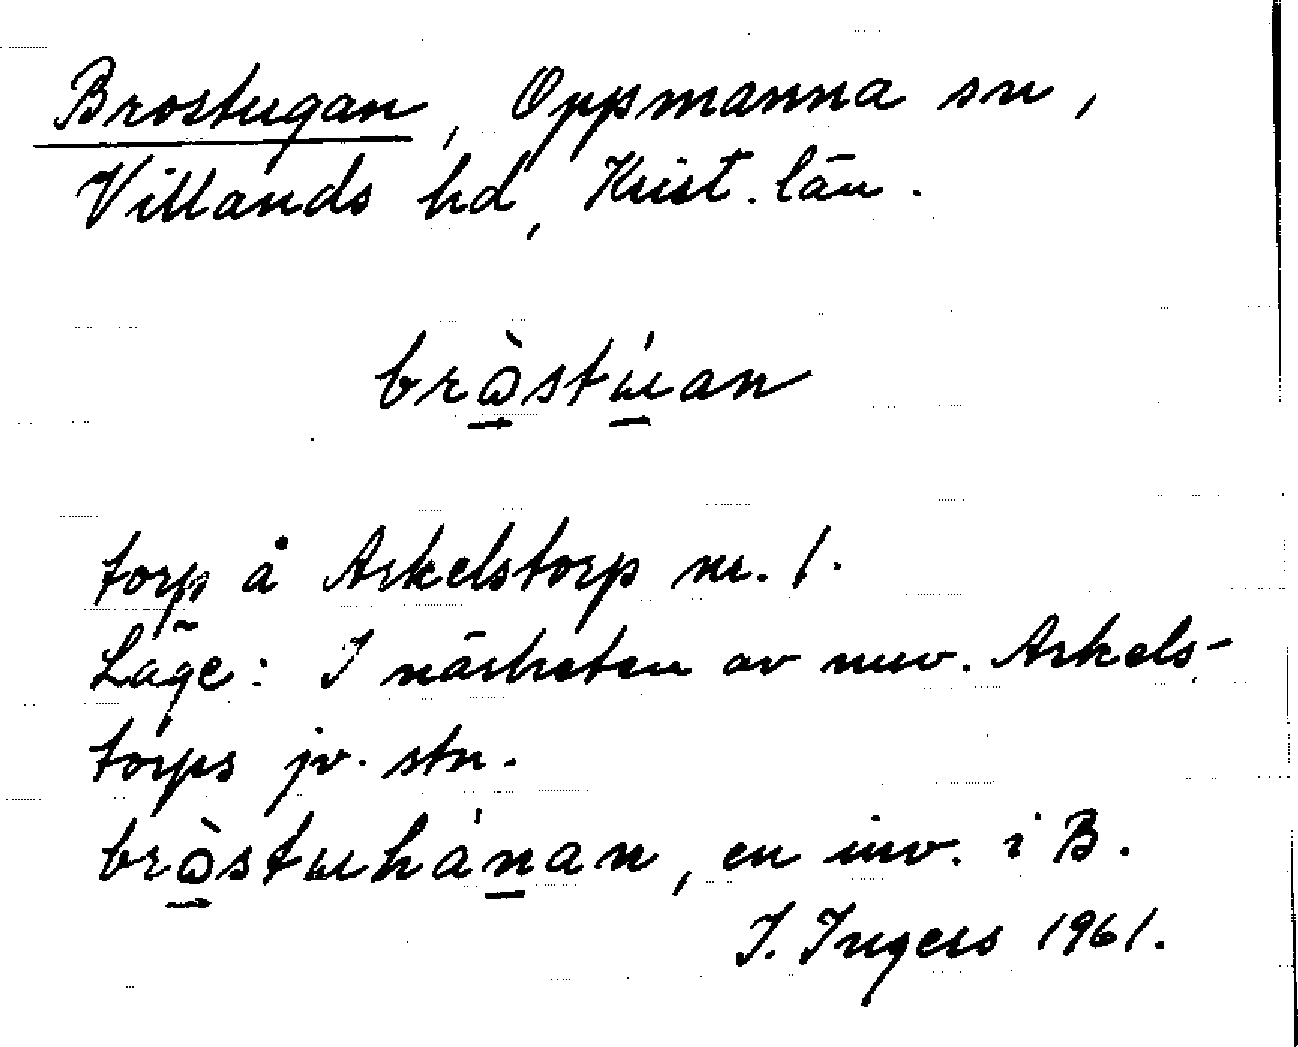 Brostugan, Oppmanna sn,
Villands hd, Krist. län.
brꝏ̀stɯ́an
torp å Arkelstorp nr. 1.
Läge: I närheten av nuv. Arkels-
torps jv. stn.
brꝏ̀stɯhánan, en inv. i B.
I. Ingers 1961.